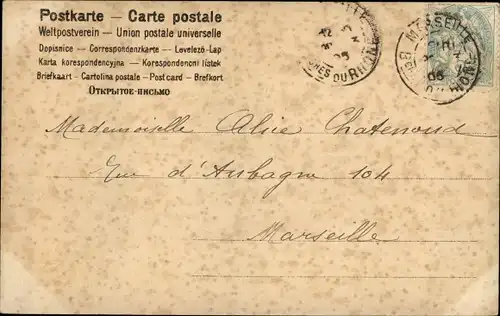 Postkarte — Carte postale
Weltpostverein — Union postale universelle
Dopisnice — Correspondenzkarte — Levelező-Lap
Karta korespondencyjna — Korespondencni listek
Briefkaart - Cartolina postale - Post card - Brefkort
Открытое-письмо
MARSEILLE
05
RHONE
MARSEILLE
05
RHONE
Mademoiselle Alice Chatenoud
Rue d'Aubagne 104
Marseille